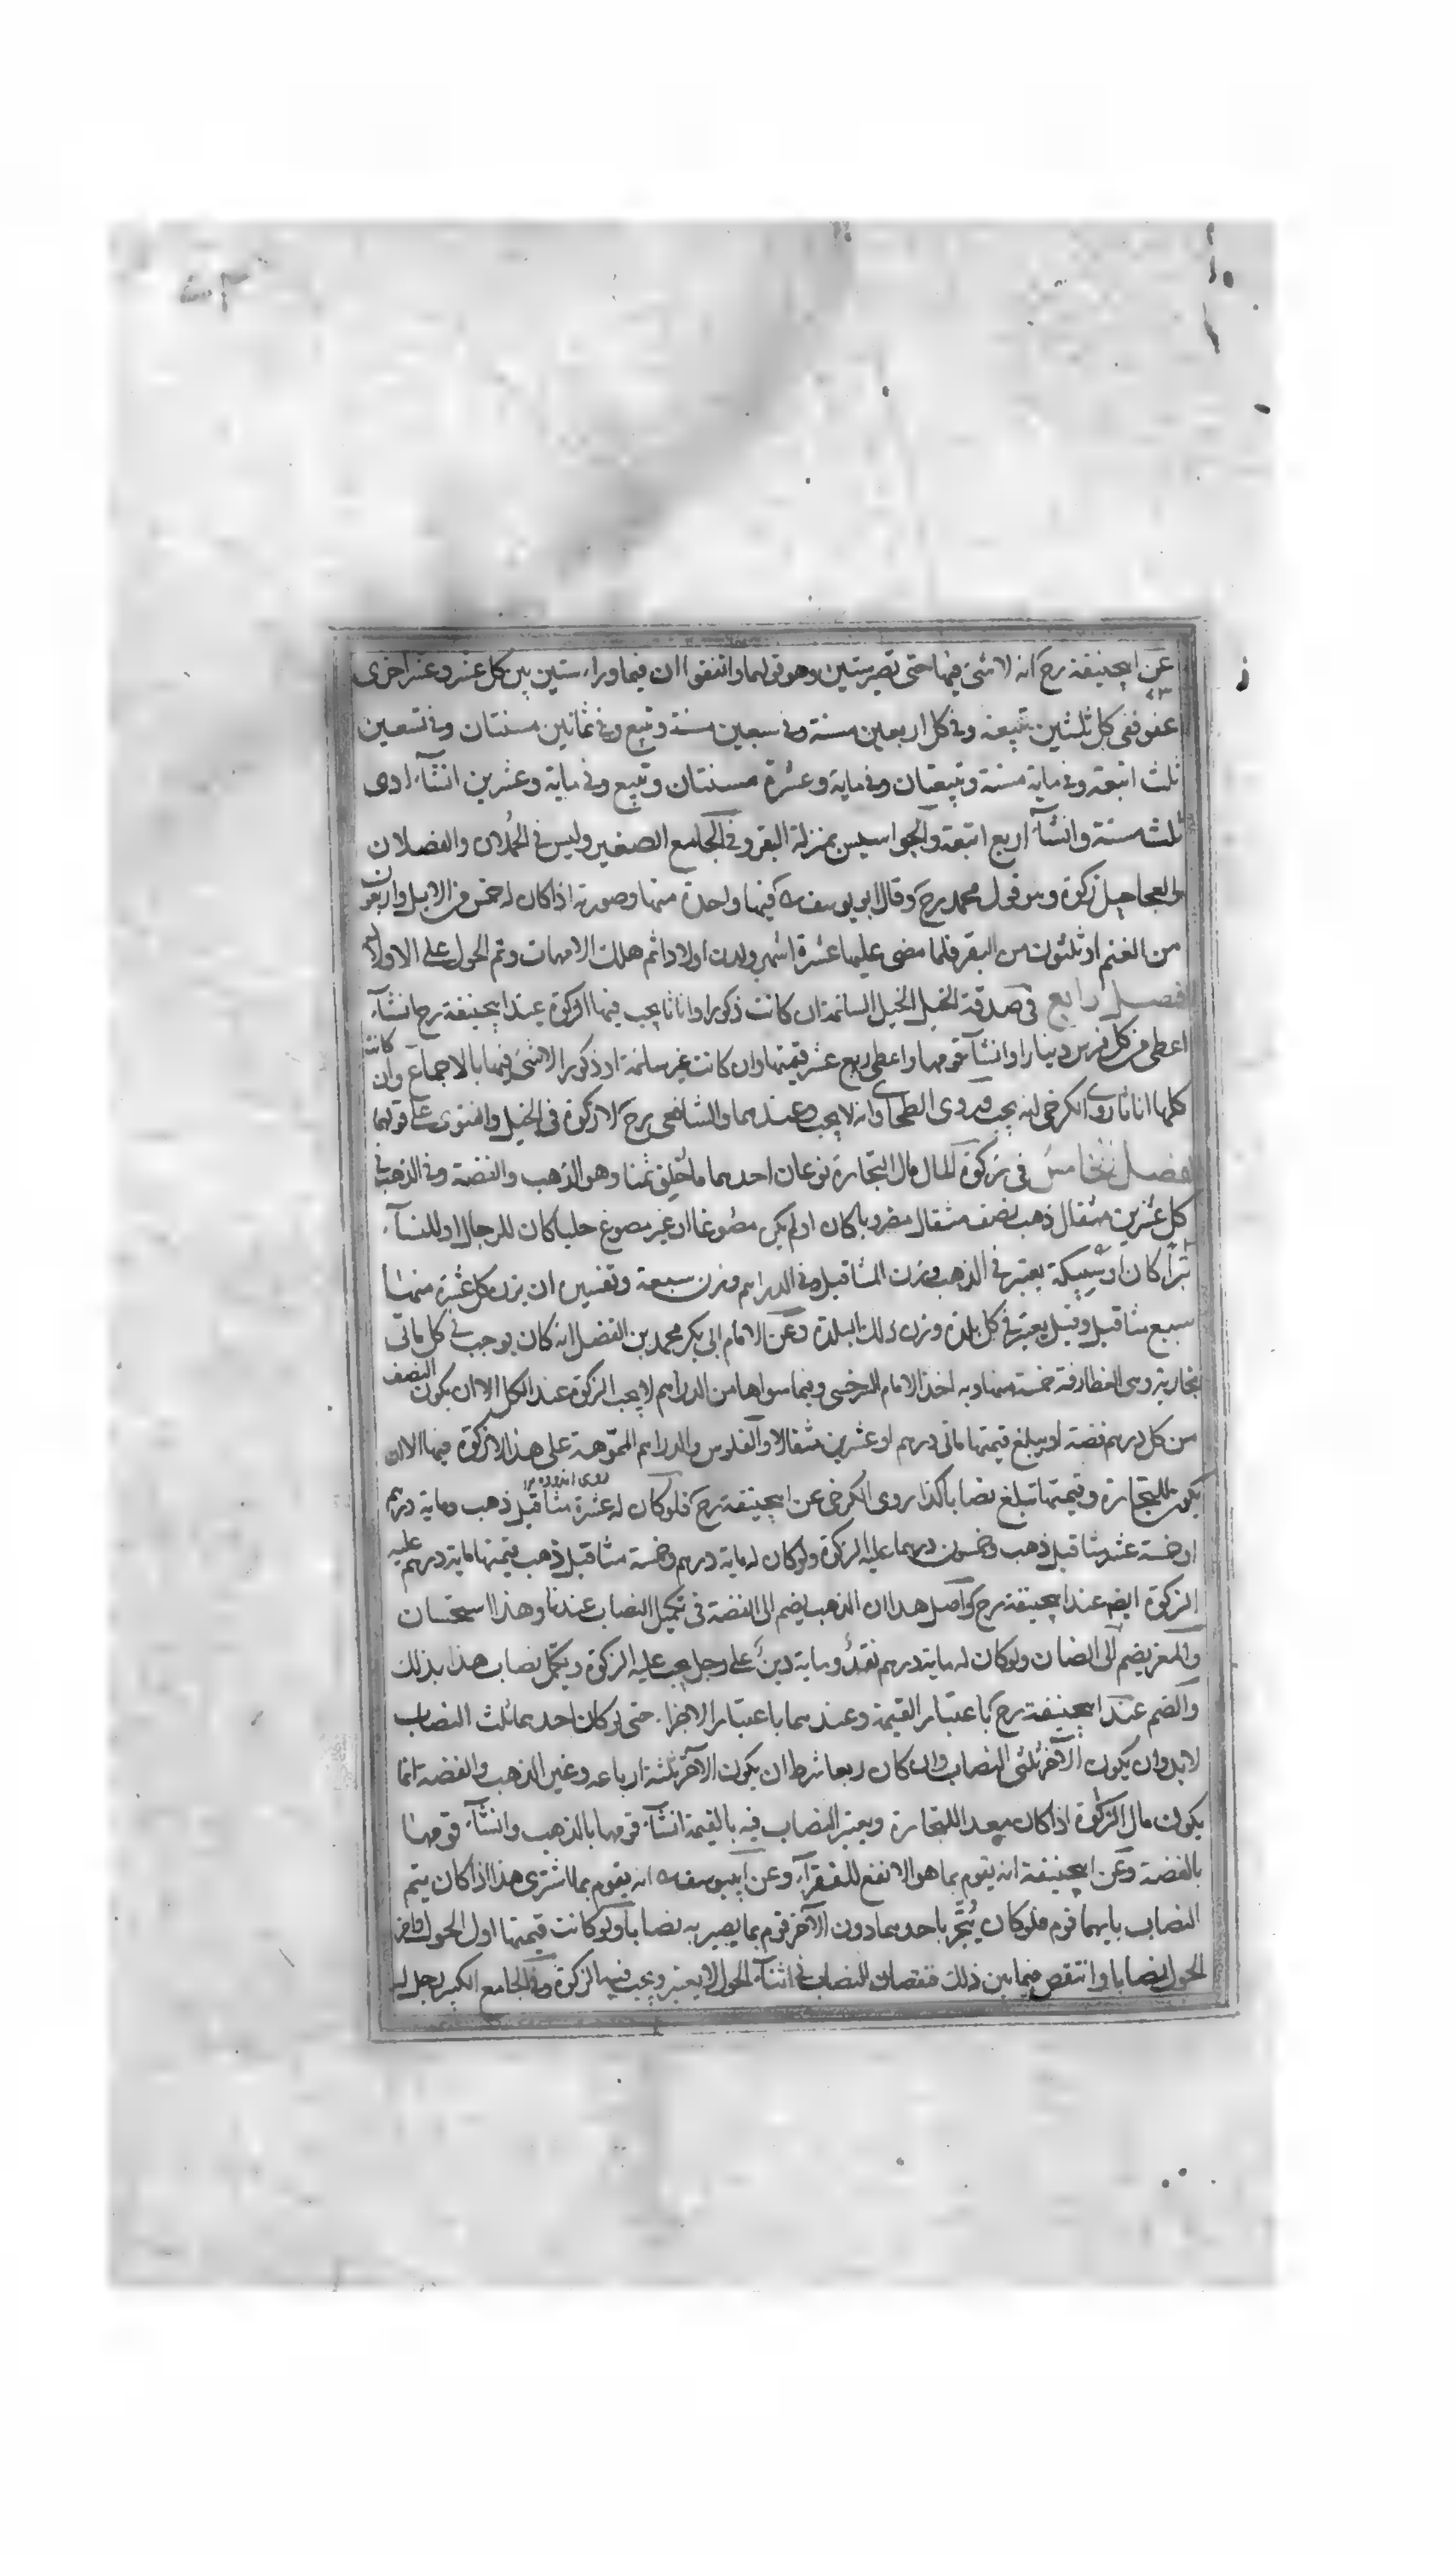 عن ابیحنیفة رح انه لا شئ فیها حتی تصیر ستین وهو قولهما واتفقوا ان فیما وراء ستین بین کل عشر وعشر اخری
عفو ففی کل ثلثین تبیعة وفی کل اربعین مسنة وفی سبعین مسنة وتبیع وفی ثمانین مسنتان وفی تسعین
ثلث اتبعة وفی مایة مسنة وتبیعتان وفی مایة وعشرة مسنتان وتبیع وفی مایة وعشرین انشآء ادی
ثلث مسنة وانشآء اربع اتبعة والجوامیس بمنزلة البقر وفی الجامع الصغیر ولیس فی الحملان والفصلان
والعجاجیل زکوة وهو قول محمد رح وقال ابو یوسف فیها واحدة منها وصورته اذا کان له خمس من الابل واربعون
من الغنم او ثلثون من البقر فلما مضی علیها عشرة اشهر ولدن اولادا ثم هلك الامهات وتم الحول علی الاولاد
الفصل الرابع فی صدقة الخیل الخیل السائمة ان کانت ذکورا واناثا یجب فیها الزکوة عند ابیحنیفة رح انشآء
اعطی من کل فرس دینارا وانشآء قومها واعطی ربع عشر قیمتها وان کانت غیر سائمة او ذکورا لا شئ فیها بالاجماع وان کانت
کلها اناثا روی الکرخی انه یجب وروی الطحاوی انه لا یجب وعندهما والشافعی رح لا زکوة فی الخیل والفتوی علی قولهما
الفصل الخامس فی زکوة المال مال التجارة نوعان احدهما ما خلق ثمنا وهو الذهب والفضة وفی الذهب فی
کل عشرین مثقال ذهب نصف مثقال مضروبا کان او لم یکن مصوغا او غیر مصوغ حلیا کان للرجال او للنسآء
تبرا کان او سبیکة یعتبر فی الذهب وزن المثاقیل وفی الدراهم وزن سبعة وتفسیره ان یزن کل عشرة منها
سبع مثاقیل وقیل یعتبر فی کل بلدة وزن ذلك البلدة وعن الامام ابی بکر محمد بن الفضل انه کان یوجب فی کل مائتی
بخاریة وهی الغطارفة خمسة منها وبه اخذ الامام السرخسی وفیما سواها من الدراهم لا یجب الزکوة عند الکل الا ان یکون النصف
من کل درهم فضة او یبلغ قیمتها مائتی درهم او عشرین مثقالا والفلوس والدراهم المموهة علی هذا لا زکوة فیها الا ان
یکون للتجارة وقیمتها تبلغ نصابا کذا روی الکرخی عن ابیحنیفة رح فلو کان له عشرة مثاقیل ذهب ومایة درهم
او خمسة عشر مثاقیل ذهب وخمسون درهما علیه الزکوة ولو کان له مایة درهم وخمسة مثاقیل ذهب قیمتها مایة درهم علیه
الزکوة ایضا عند ابیحنیفة رح واصل هذا ان الذهب یضم الی الفضة فی تکمیل النصاب عندنا وهذا استحسان
والمعز یضم الی الضان ولو کان له مایة درهم نقد ومایة دین علی رجل یجب علیه الزکوة ویکمل نصاب هذا بذلك
والضم عند ابیحنیفة رح باعتبار القیمة وعندهما باعتبار الاجزاء حتی لو کان احدهما ثلث النصاب
لابد وان یکون الآخر ثلثی النصاب وان کان ربعا شرط ان یکون الآخر ثلثة ارباعه وغیر الذهب والفضة انما
یکون مال الزکوة اذا کان معدا للتجارة ویعتبر النصاب فیه بالقیمة انشآء قومها بالذهب وانشآء قومها
بالفضة وعن ابیحنیفة انه یقوم بما هو الانفع للفقرآء وعن ابییوسف انه یقوم بما اشتری هذا اذا کان یتم
النصاب بایهما قوم فلو کان یُتمّ باحدهما دون الآخر قوم بما یصیر به نصابا ولو کانت قیمتها اول الحول وآخر
الحول نصابا وانتقص فیما بین ذلك فنقصان النصاب فی اثنآء الحول لا یعتبر ویجب فیها الزکوة وفی الجامع الکبیر رجل له